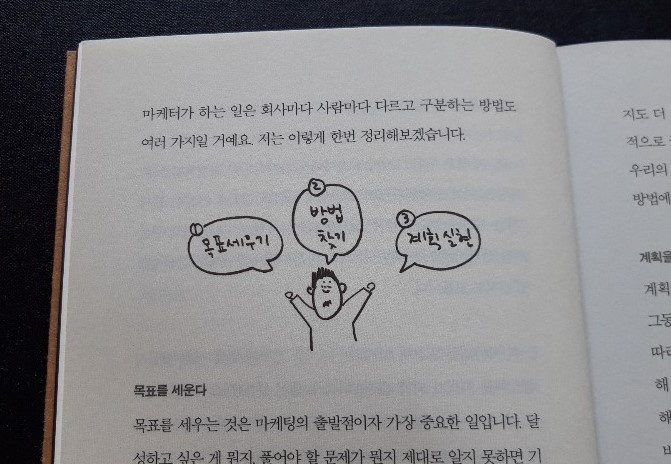 마케터가 하는 일은 회사마다 사람마다 다르고 구분하는 방법도
여러 가지일 거예요. 저는 이렇게 한번 정리해보겠습니다.
① 목표세우기
② 방법
찾기
③ 계획실현
목표를 세운다
목표를 세우는 것은 마케팅의 출발점이자 가장 중요한 일입니다. 달
성하고 싶은 게 뭔지, 풀어야 할 문제가 뭔지 제대로 알지 못하면 기
지도 더
적으로
우리의
방법에
계획을
계획
그동
따라
해
해